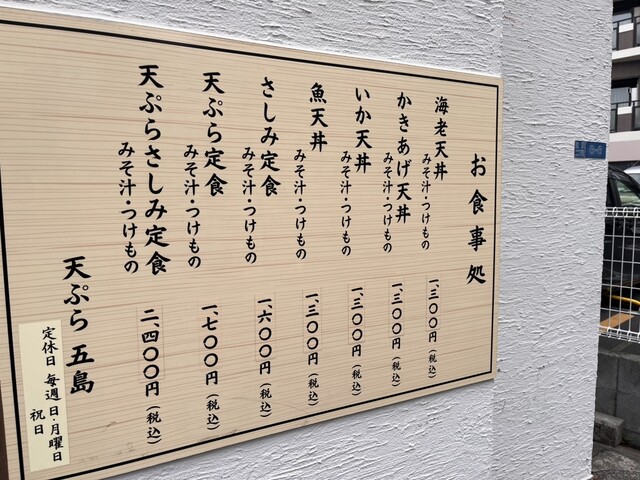 お食事処
海老天丼
みそ汁・つけもの
一、三〇〇円（税込）
かきあげ天丼
みそ汁・つけもの
一、三〇〇円（税込）
いか天丼
みそ汁・つけもの
一、三〇〇円（税込）
魚天丼
みそ汁・つけもの
一、三〇〇円（税込）
さしみ定食
みそ汁・つけもの
一、六〇〇円（税込）
天ぷら定食
みそ汁・つけもの
一、七〇〇円（税込）
天ぷらさしみ定食
みそ汁・つけもの
二、四〇〇円（税込）
天ぷら 五島
定休日 毎週 日・月曜日
祝日